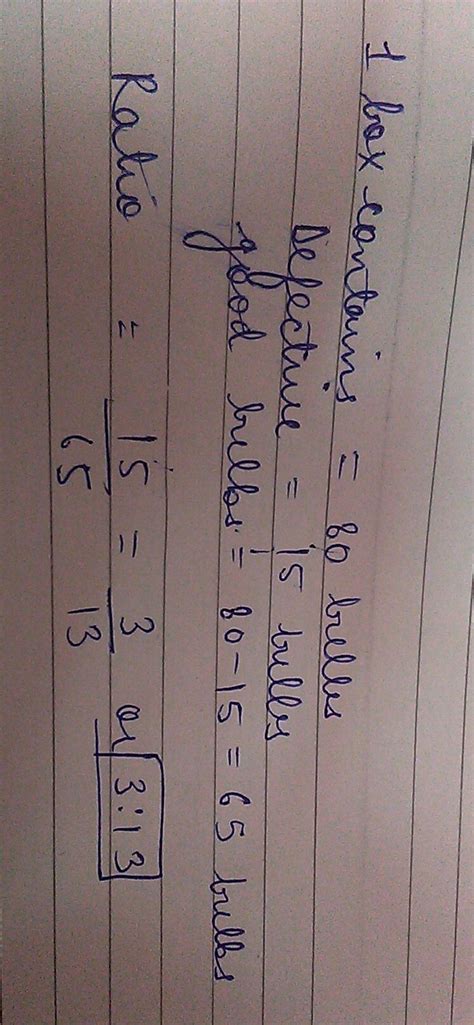 1 box contains = 80 bulbs
Defective = 15 bulbs
good bulbs = 80 - 15 = 65 bulbs
Ratio = 15/65 = 3/13 or 3:13